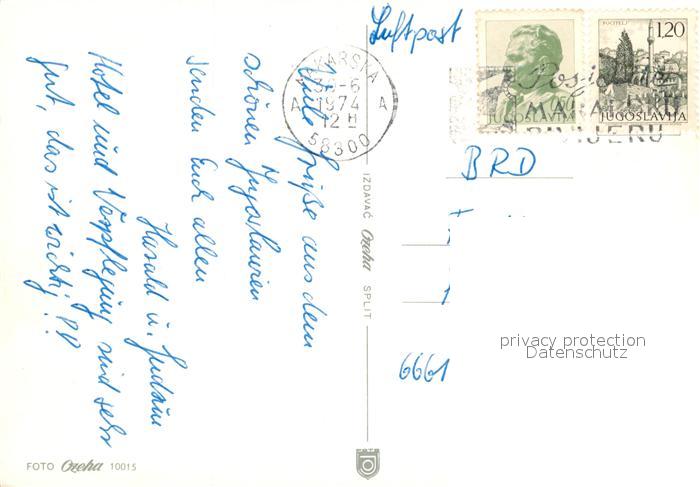 Luftpost
Viele Grüße aus dem
schönen Jugoslawien
senden Euch allen
Harald u.
Hotel und Verpflegung sind sehr
gut, das ist wichtig!!
MAKARSKA
1974
12 H
58300
A A
POČITELJ
1,20
JUGOSLAVIJA
JUGOSLAVIJA
RIVIJERU
BRD
6661
privacy protection
Datenschutz
IZDAVAČ Ozeha SPLIT
FOTO Ozeha 10015